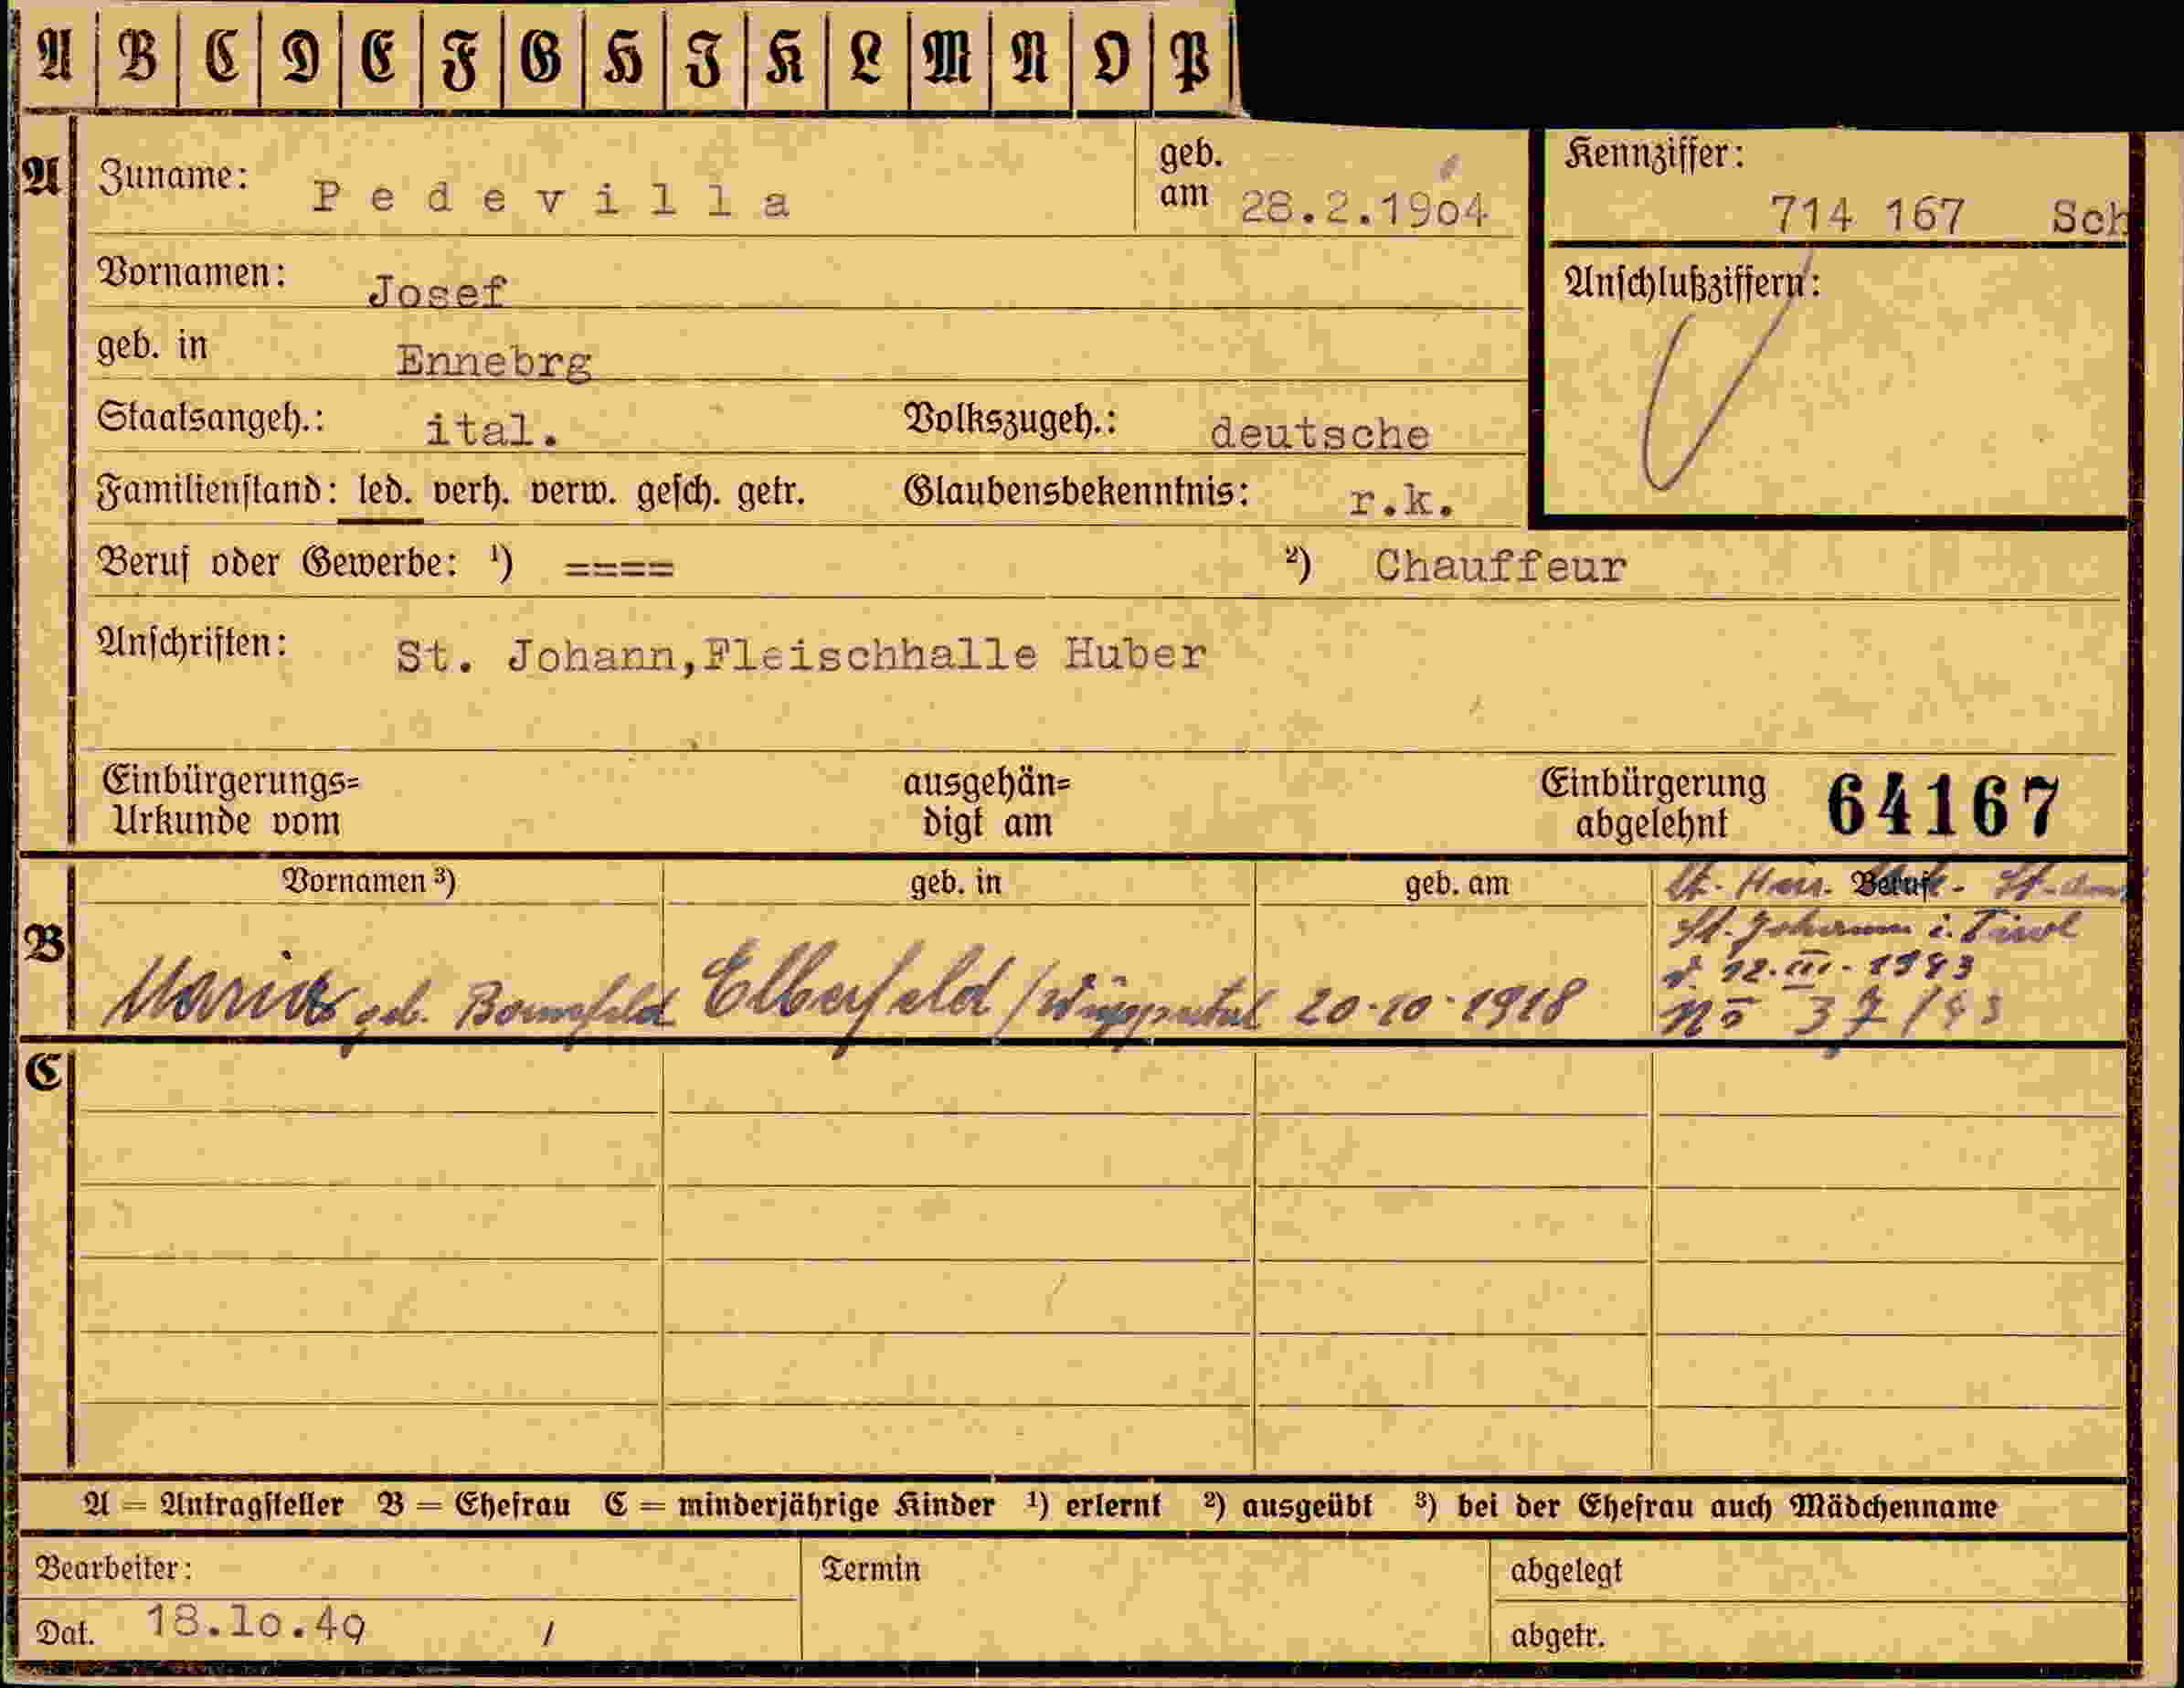 A B C D E F G H I K L M N O P
A Zuname: Pedevilla geb. am 28.2.19o4 Kennziffer: 714 167 Sch
Vornamen: Josef Anschlußziffern:
geb. in Ennebrg
Staatsangeh.: ital. Volkszugeh.: deutsche
Familienstand: led. verh. verw. gesch. getr. Glaubensbekenntnis: r.k.
Beruf oder Gewerbe: ¹) ==== ²) Chauffeur
Anschriften: St. Johann,Fleischhalle Huber
Einbürgerungs= ausgehän= Einbürgerung 64167
Urkunde vom digt am abgelehnt
Vornamen ³) geb. in geb. am Beruf
St. Johann i. Tirol
B 12.III.1943
Maria geb. Elberfeld /Wuppertal 20.10.1918 No 37/43
C
A = Antragsteller B = Ehefrau C = minderjährige Kinder ¹) erlernt ²) ausgeübt ³) bei der Ehefrau auch Mädchenname
Bearbeiter: Termin abgelegt
Dat. 18.1o.49 / abgetr.